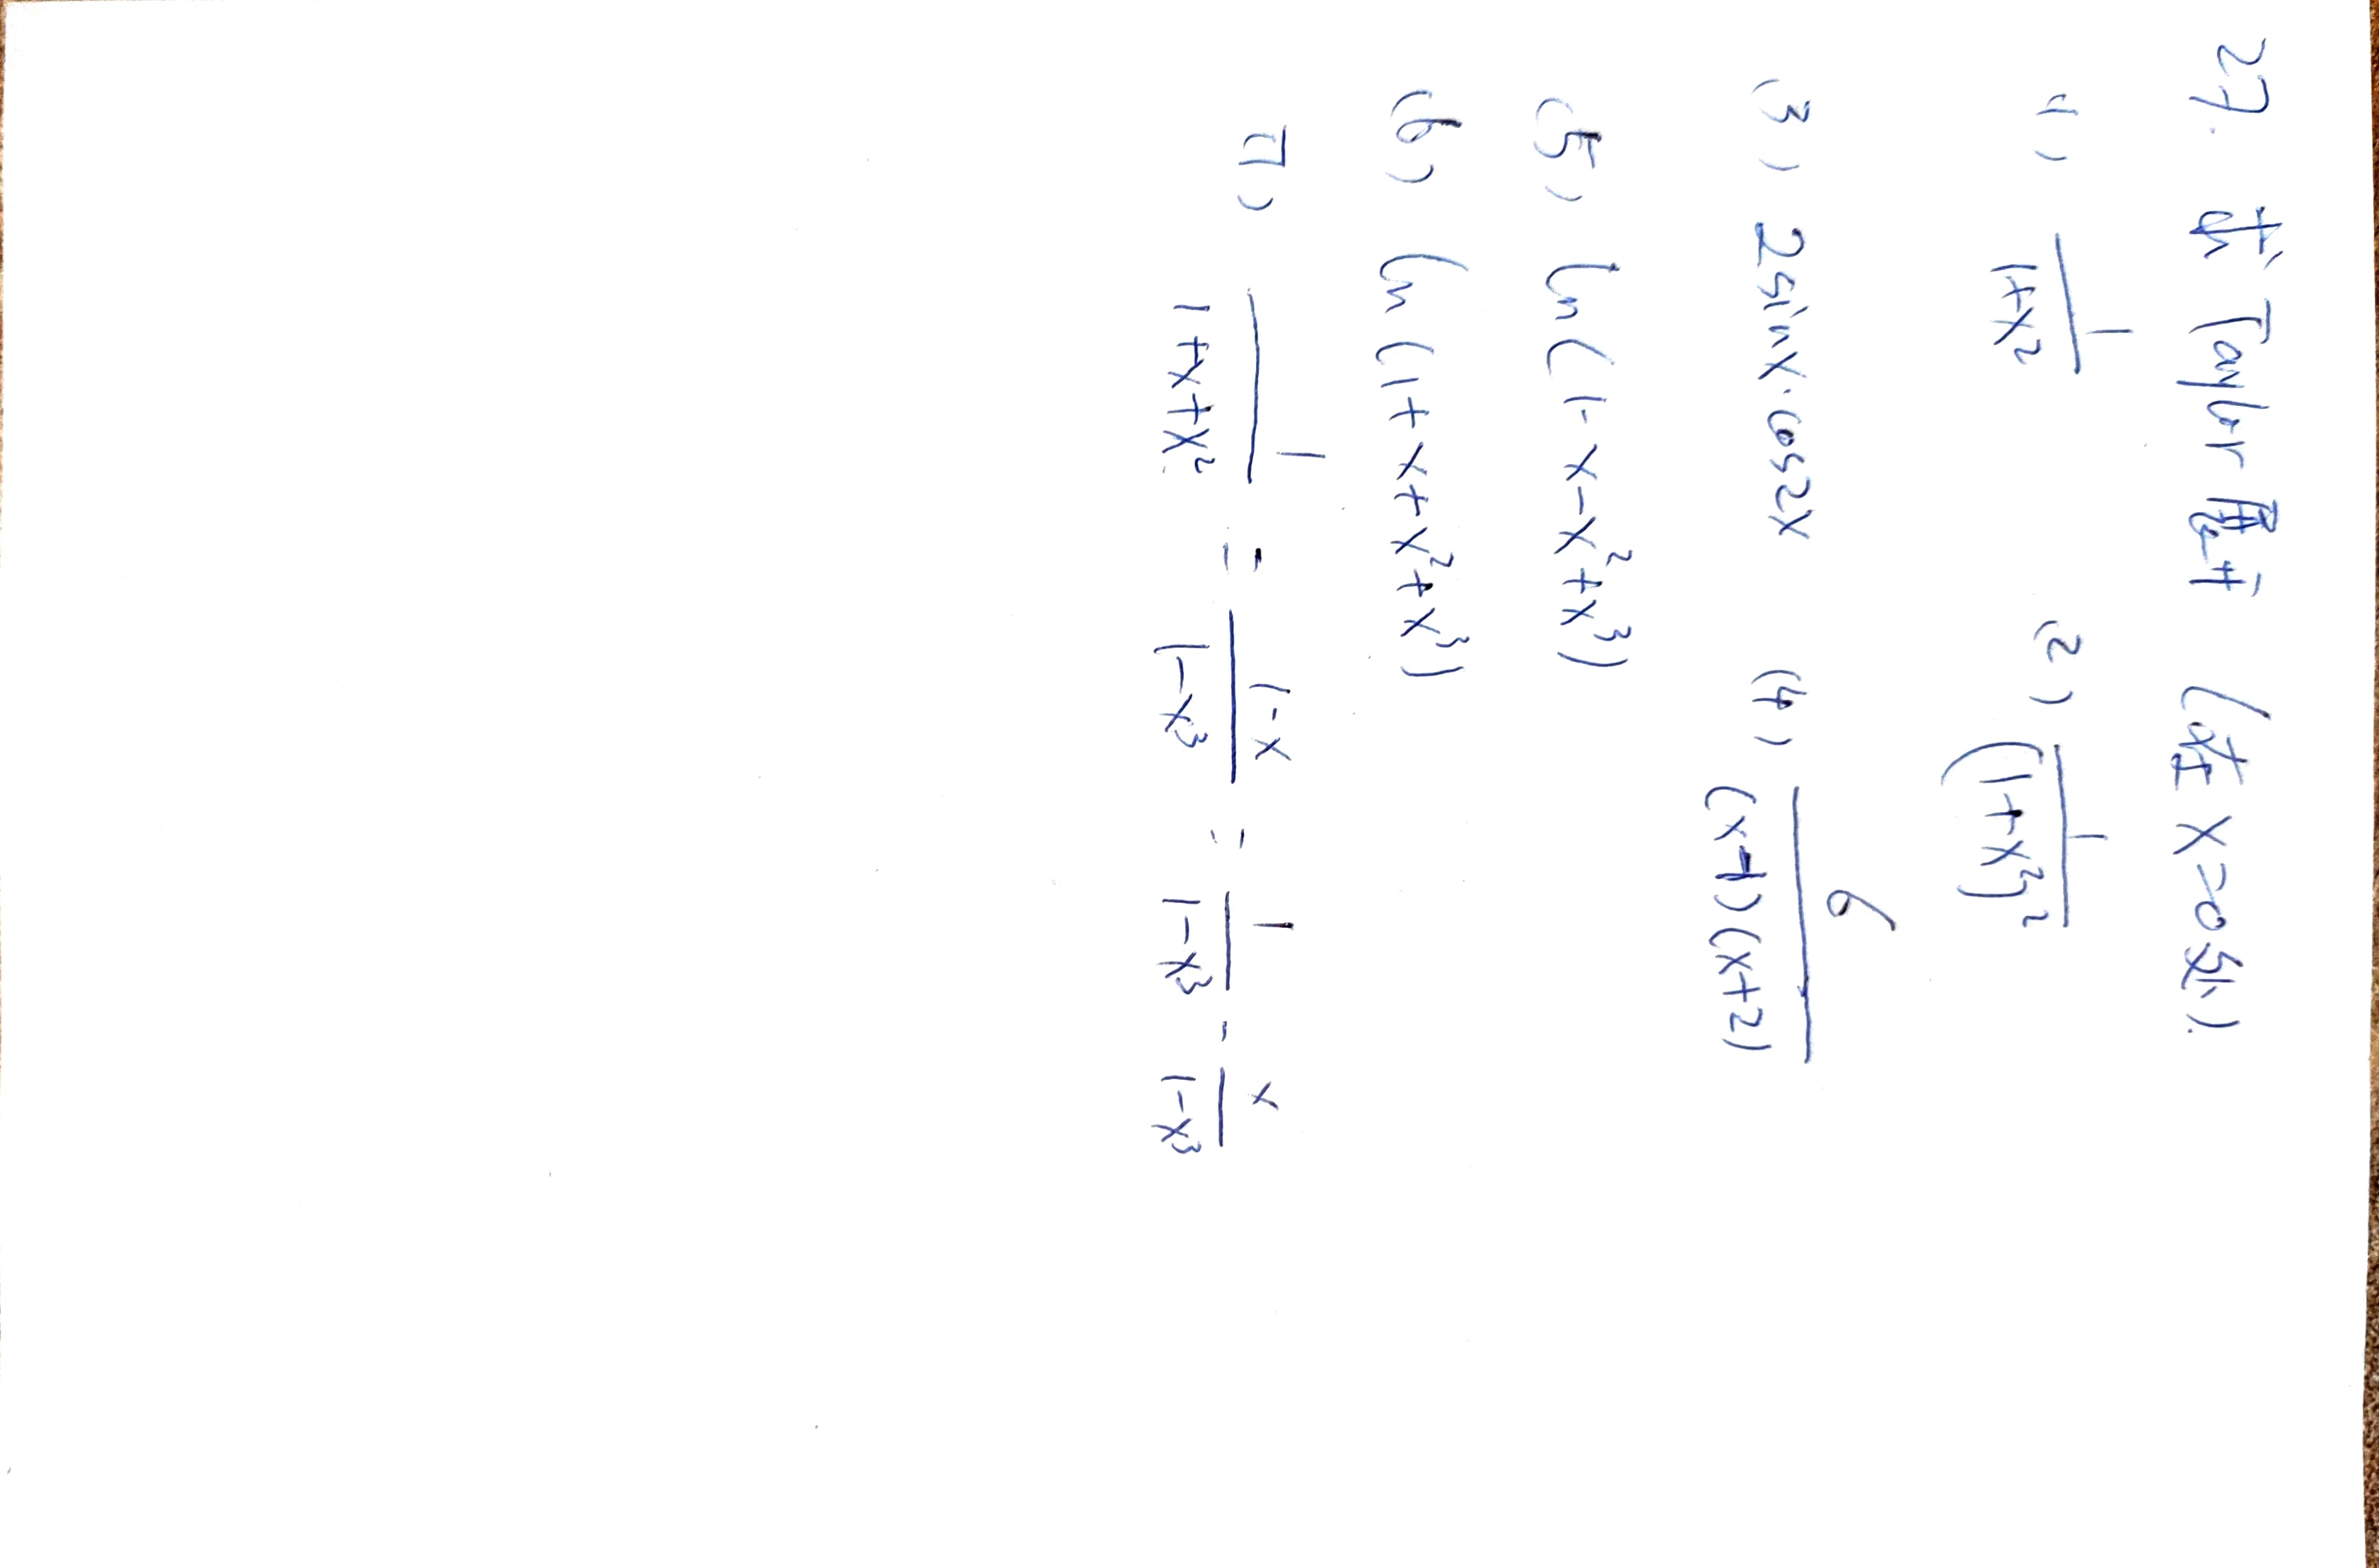 27. 求 Taylor 展开 (在 x=0处).
(1) 1/(1+x²) (2) 1/(1+x²)²
(3) 2sinx·cos2x (4) 6/((x-1)(x+2))
(5) ln(1-x-x²+x³)
(6) ln(1+x+x²+x³)
(7) 1/(1+x+x²) = (1-x)/(1-x³) = 1/(1-x³) - x/(1-x³)